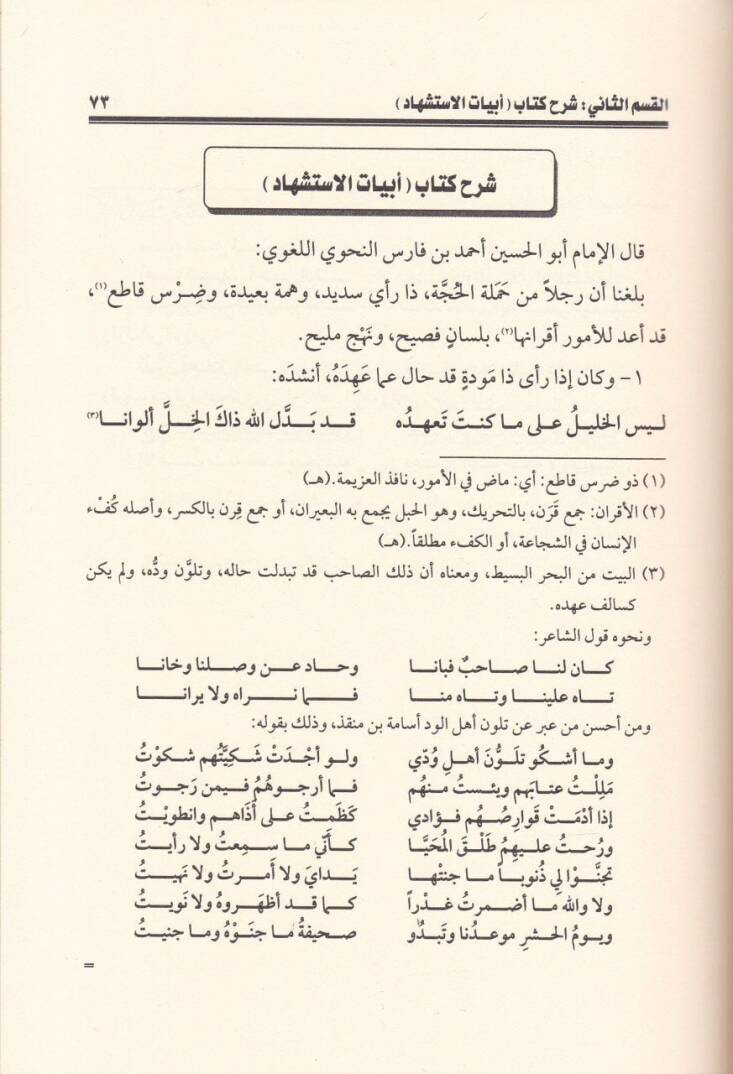 القسم الثاني: شرح كتاب (أبيات الاستشهاد) ٧٣
شرح كتاب (أبيات الاستشهاد)
قال الإمام أبو الحسين أحمد بن فارس النحوي اللغوي:
بلغنا أن رجلاً من حَمَلة الحُجَّة، ذا رأي سديد، وهمة بعيدة، وضِرْس قاطع(١)،
قد أعد للأمور أقرانها(٢)، بلسانٍ فصيح، ونَهْج مليح.
١- وكان إذا رأى ذا مَودةٍ قد حال عما عَهِدَهُ، أنشدَه:
ليس الخليلُ على ما كنتَ تَعهدُه قد بَدَّل الله ذاكَ الخِلَّ ألوانا(٣)
(١) ذو ضرس قاطع: أي: ماض في الأمور، نافذ العزيمة.(هـ)
(٢) الأقران: جمع قَرَن، بالتحريك، وهو الحبل يجمع به البعيران، أو جمع قِرن بالكسر، وأصله كُفْء
الإنسان في الشجاعة، أو الكفء مطلقاً.(هـ)
(٣) البيت من البحر البسيط، ومعناه أن ذلك الصاحب قد تبدلت حاله، وتلوَّن ودُّه، ولم يكن
كسالف عهده.
ونحوه قول الشاعر:
كان لنا صاحبٌ فبانا وحاد عن وصلنا وخانا
تاه علينا وتاه منا فما نراه ولا يرانا
ومن أحسن من عبر عن تلون أهل الود أسامة بن منقذ، وذلك بقوله:
وما أشكو تلوُّنَ أهلِ وُدّي ولو أجْدَتْ شَكِيَّتُهم شكوْتُ
مَلِلْتُ عتابَهم ويئستُ منهُم فما أرجوهُمُ فيمن رَجوتُ
إذا أدْمَتْ قَوارِصُهُم فؤادي كَظَمتُ على أذَاهم وانطويْتُ
ورُحتُ عليهِمُ طَلْقَ المُحَيَّا كأنّي ما سمِعتُ ولا رأيتُ
تجنَّوْا لي ذُنوباً ما جنتْها يَدايَ ولا أَمرتُ ولا نَهيتُ
ولا والله ما أضمرتُ غدْراً كما قد أظهَروهُ ولا نَويتُ
ويومُ الحشرِ موعدُنا وتَبدُو صحيفةُ ما جنَوْهُ وما جنيتُ
=